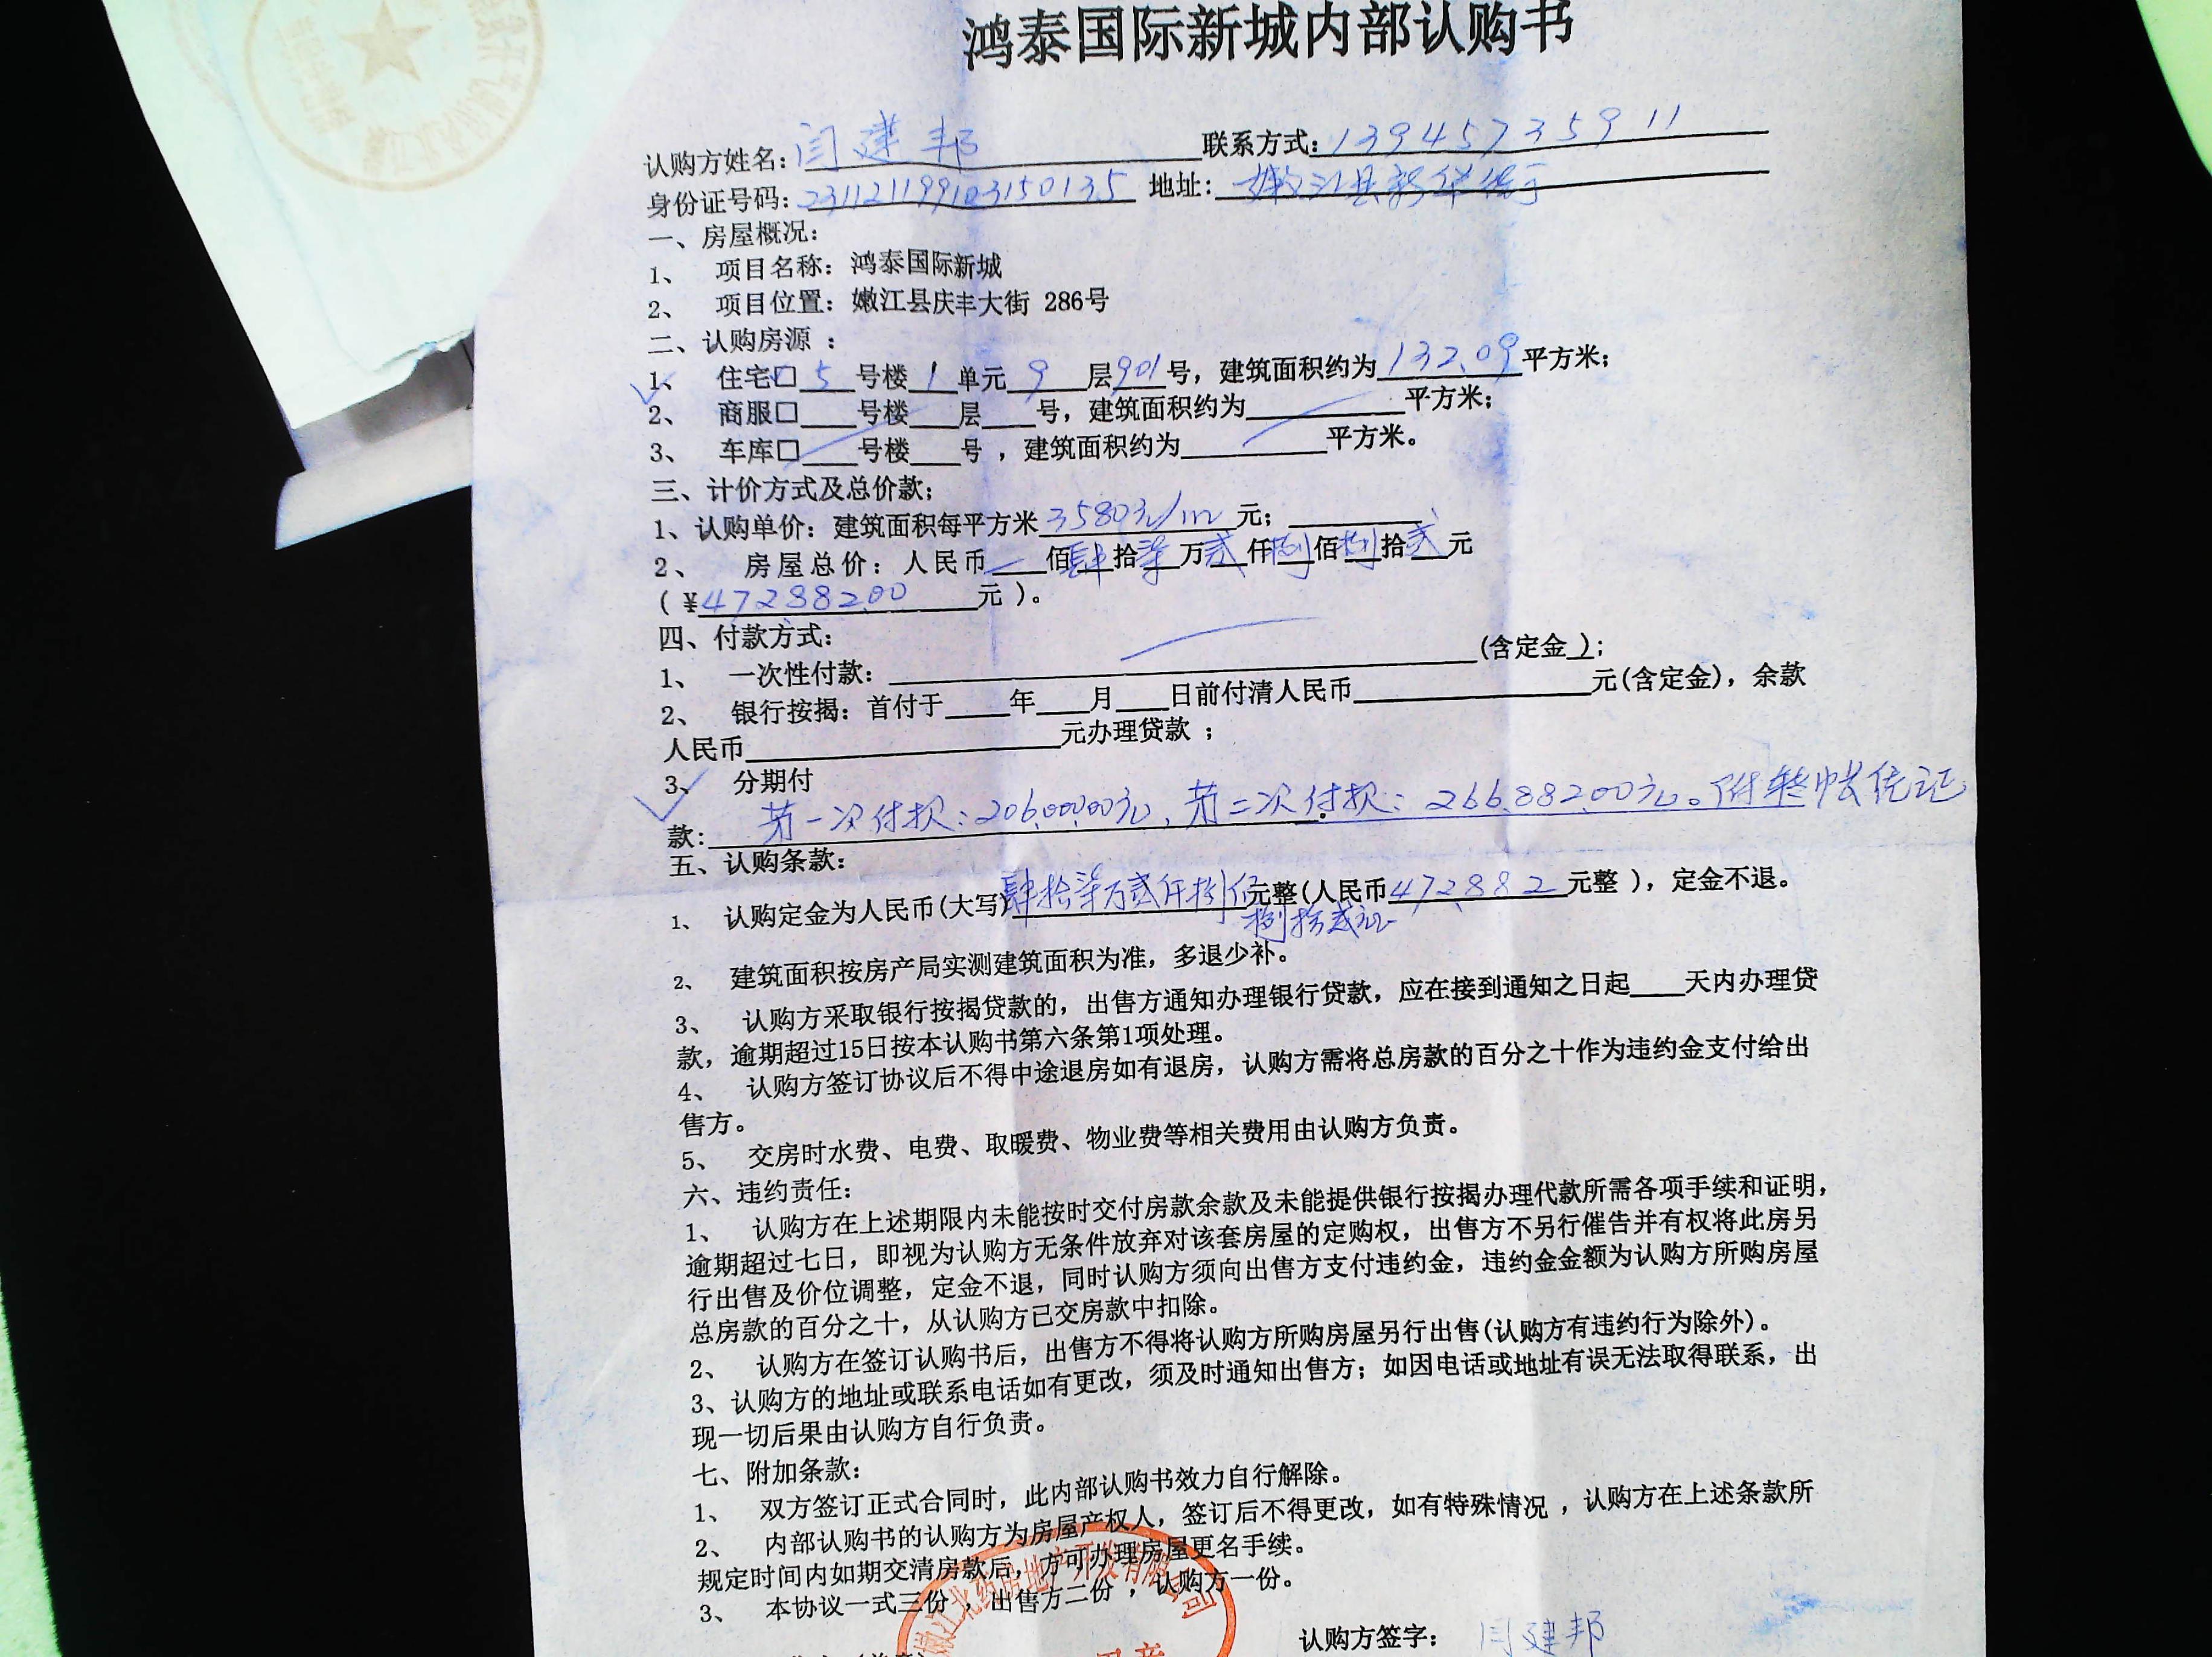 鸿泰国际新城内部认购书
认购方姓名：闫建邦 联系方式：13945735911
身份证号码：231121199103150135 地址：嫩江县新华街
一、房屋概况：
1、 项目名称：鸿泰国际新城
2、 项目位置：嫩江县庆丰大街 286号
二、认购房源 ：
1、 住宅□ 5 号楼 1 单元 9 层 901 号，建筑面积约为 132.09 平方米；
2、 商服□____号楼____层____号，建筑面积约为__________平方米；
3、 车库□____号楼____号 ，建筑面积约为__________平方米。
三、计价方式及总价款；
1、认购单价：建筑面积每平方米 3580元/m 元；__________
2、 房屋总价：人民币____佰肆拾柒万贰仟捌佰捌拾贰元
（¥472882.00 元 ）。
四、付款方式：
1、 一次性付款：____________________（含定金 ）；
2、 银行按揭：首付于____年____月____日前付清人民币__________元（含定金），余款
人民币__________元办理贷款 ；
3、 分期付
款：第一次付款：206,000.00元，第二次付款：266,882.00元。附转帐凭证
五、认购条款：
1、 认购定金为人民币（大写）肆拾柒万贰仟捌佰元整（人民币472,882元整 ），定金不退。
捌拾贰元
2、 建筑面积按房产局实测建筑面积为准，多退少补。
3、 认购方采取银行按揭贷款的，出售方通知办理银行贷款，应在接到通知之日起____天内办理贷
款，逾期超过15日按本认购书第六条第1项处理。
4、 认购方签订协议后不得中途退房如有退房，认购方需将总房款的百分之十作为违约金支付给出
售方。
5、 交房时水费、电费、取暖费、物业费等相关费用由认购方负责。
六、违约责任：
1、 认购方在上述期限内未能按时交付房款余款及未能提供银行按揭办理代款所需各项手续和证明，
逾期超过七日，即视为认购方无条件放弃对该套房屋的定购权，出售方不另行催告并有权将此房另
行出售及价位调整，定金不退，同时认购方须向出售方支付违约金，违约金金额为认购方所购房屋
总房款的百分之十，从认购方已交房款中扣除。
2、 认购方在签订认购书后，出售方不得将认购方所购房屋另行出售（认购方有违约行为除外）。
3、认购方的地址或联系电话如有更改，须及时通知出售方；如因电话或地址有误无法取得联系，出
现一切后果由认购方自行负责。
七、附加条款：
1、 双方签订正式合同时，此内部认购书效力自行解除。
2、 内部认购书的认购方为房屋产权人，签订后不得更改，如有特殊情况 ，认购方在上述条款所
规定时间内如期交清房款后，方可办理房屋更名手续。
3、 本协议一式三份 ，出售方二份 ，认购方一份。
嫩江北药房地产开发有限公司
认购方签字： 闫建邦